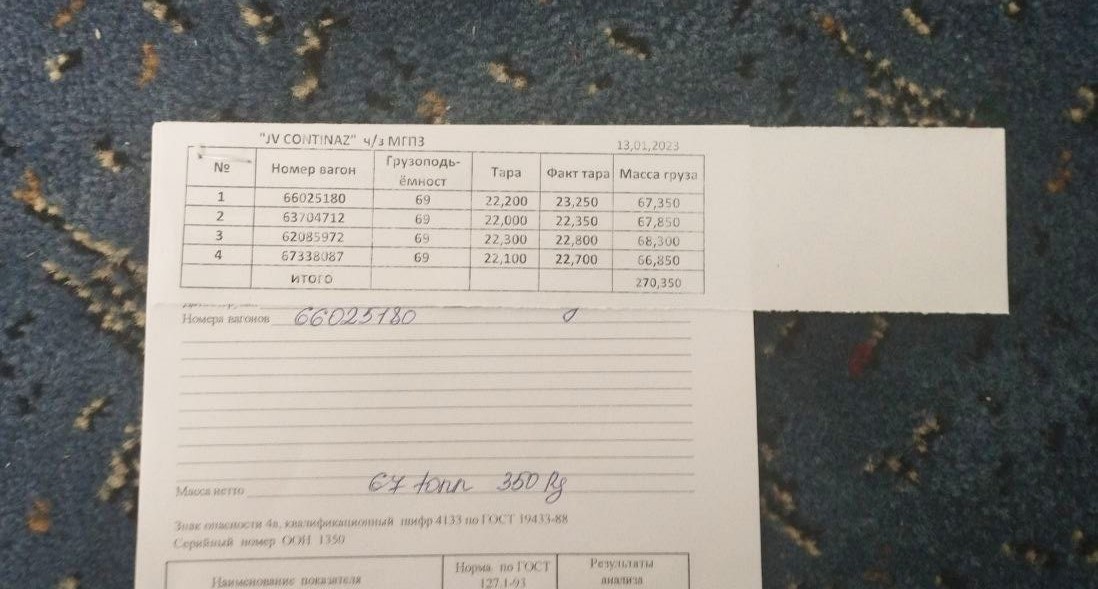 "JV CONTINAZ" ч/з МГПЗ 13,01,2023
№ Номер вагон Грузоподь-ёмност Тара Факт тара Масса груза
1 66025180 69 22,200 23,250 67,350
2 63704712 69 22,000 22,350 67,850
3 62085972 69 22,300 22,800 68,300
4 67338087 69 22,100 22,700 66,850
ИТОГО 270,350
Номера вагонов 66025180
Масса нетто 67 тонн 350 kg
Знак опасности 4в, квалификационный шифр 4133 по ГОСТ 19433-88
Серийный номер ООН 1350
Наименование показателя Норма по ГОСТ 127.1-93 Результаты анализа